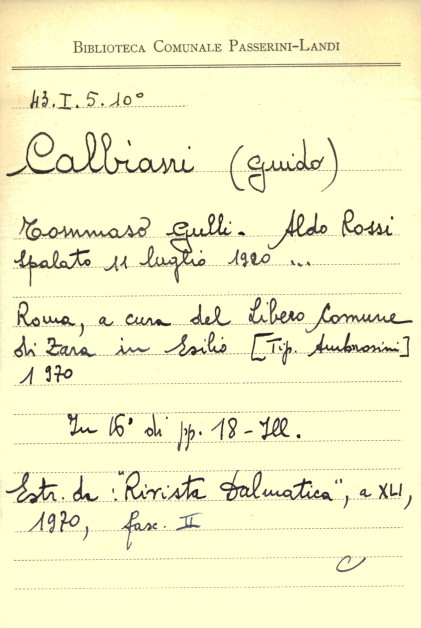 BIBLIOTECA COMUNALE PASSERINI-LANDI
43.I.5.10°
Calbiani (Guido)
Tommaso Gulli. Aldo Rossi
Spalato 11 luglio 1920 ...
Roma, a cura del Libero Comune
di Zara in Esilio [Tip. Ambrosini]
1970
In 16° di pp. 18 - Ill.
Estr. da: "Rivista Dalmatica", a XLI,
1970, fasc. II
C